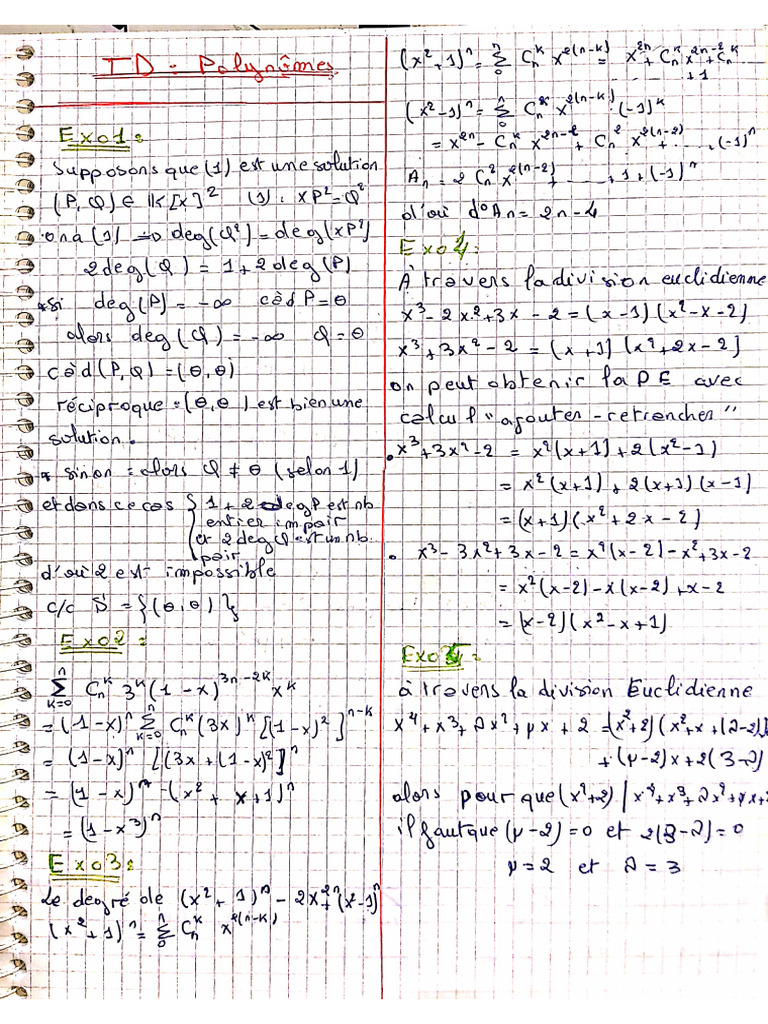 TD - Polynômes
Exo1:
Supposons que (1) est une solution
(P, Q) ∈ K[x]² (1): xP² = Q²
ona (1) ⇒ deg(Q²) = deg(xP²)
2deg(Q) = 1 + 2deg(P)
* si deg(P) = -∞ càd P = θ
alors deg(Q) = -∞ Q = θ
càd (P, Q) = (θ, θ)
réciproque = (θ, θ) est bien une
solution.
* sinon = alors Q ≠ θ (selon 1)
et dans ce cas { 1 + 2 deg P est nb
entier impair
et 2deg Q est un nb.
pair
d'où 2 est impossible
c/c S = {(θ, θ)}
Exo2:
∑_{k=0}^{n} C_n^k 3^k (1-x)^{3n-2k} x^k
= (1-x)^n ∑_{k=0}^{n} C_n^k (3x)^k [(1-x)²]^{n-k}
= (1-x)^n [(3x + (1-x)²)]^n
= (1-x)^n - (x² + x + 1)^n
= (1-x³)^n
Exo3:
Le degré de (x² + 1)^n - 2x^{2n} + (x²-1)^n
(x² + 1)^n = ∑_0^n C_n^k x^{2(n-k)}
(x² + 1)^n = ∑_0^n C_n^k x^{2(n-k)} = x^{2n} + C_n^k x^{2n-2} + C_n^k
+ 1
(x² - 1)^n = ∑_0^n C_n^k x^{2(n-k)} . (-1)^k
= x^{2n} - C_n^k x^{2n-2} + C_n^2 x^{2(n-2)} + ... , (-1)^n
A_n = 2 C_n^2 x^{2(n-2)} + ... + 1 + (-1)^n
d'où d°An = 2n - 4
Exo4:
À travers la division euclidienne
x³ - 2x² + 3x - 2 = (x - 1)(x² - x - 2)
x³ + 3x² - 2 = (x + 1)(x² + 2x - 2)
on peut obtenir la DE avec
calcul "ajouter - retrancher"
• x³ + 3x² - 2 = x²(x + 1) + 2(x² - 1)
= x²(x + 1) + 2(x + 1)(x - 1)
= (x + 1)(x² + 2x - 2)
• x³ - 3x² + 3x - 2 = x²(x - 2) - x² + 3x - 2
= x²(x - 2) - x(x - 2) + x - 2
= (x - 2)(x² - x + 1)
Exo5:
à travers la division Euclidienne
x⁴ + x³ + λx² + μx + 2 = (x² + 2)(x² + x + (λ - 2))
+ (μ - 2)x + 2(3 - λ)
alors pour que (x² + 2) | x⁴ + x³ + λx² + μx + 2
il faut que (μ - 2) = 0 et 2(3 - λ) = 0
μ = 2 et λ = 3